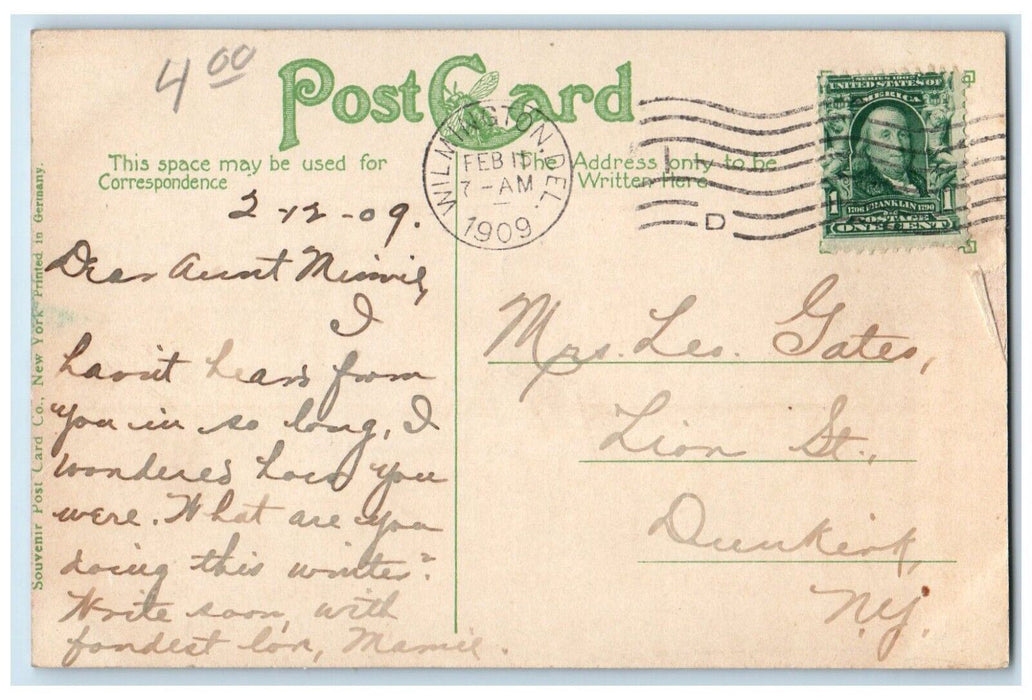 4 00
Post Card
This space may be used for
Correspondence
The Address only to be
Written Here
WILMINGTON, DEL.
FEB 1
7-AM
1909
D
SERIES 1902
UNITED STATES OF
AMERICA
1 1
1706 FRANKLIN 1790
POSTAGE
ONE CENT
2-12-09.
Dear Aunt Minnie,
I
havn't heard from
you in so long, I
wondered how you
were. What are you
doing this winter?
Write soon, with
fondest love, Mamie.
Mrs. Leo. Gates,
Lion St.,
Dunkirk,
N.Y.
Souvenir Post Card Co., New York Printed in Germany.